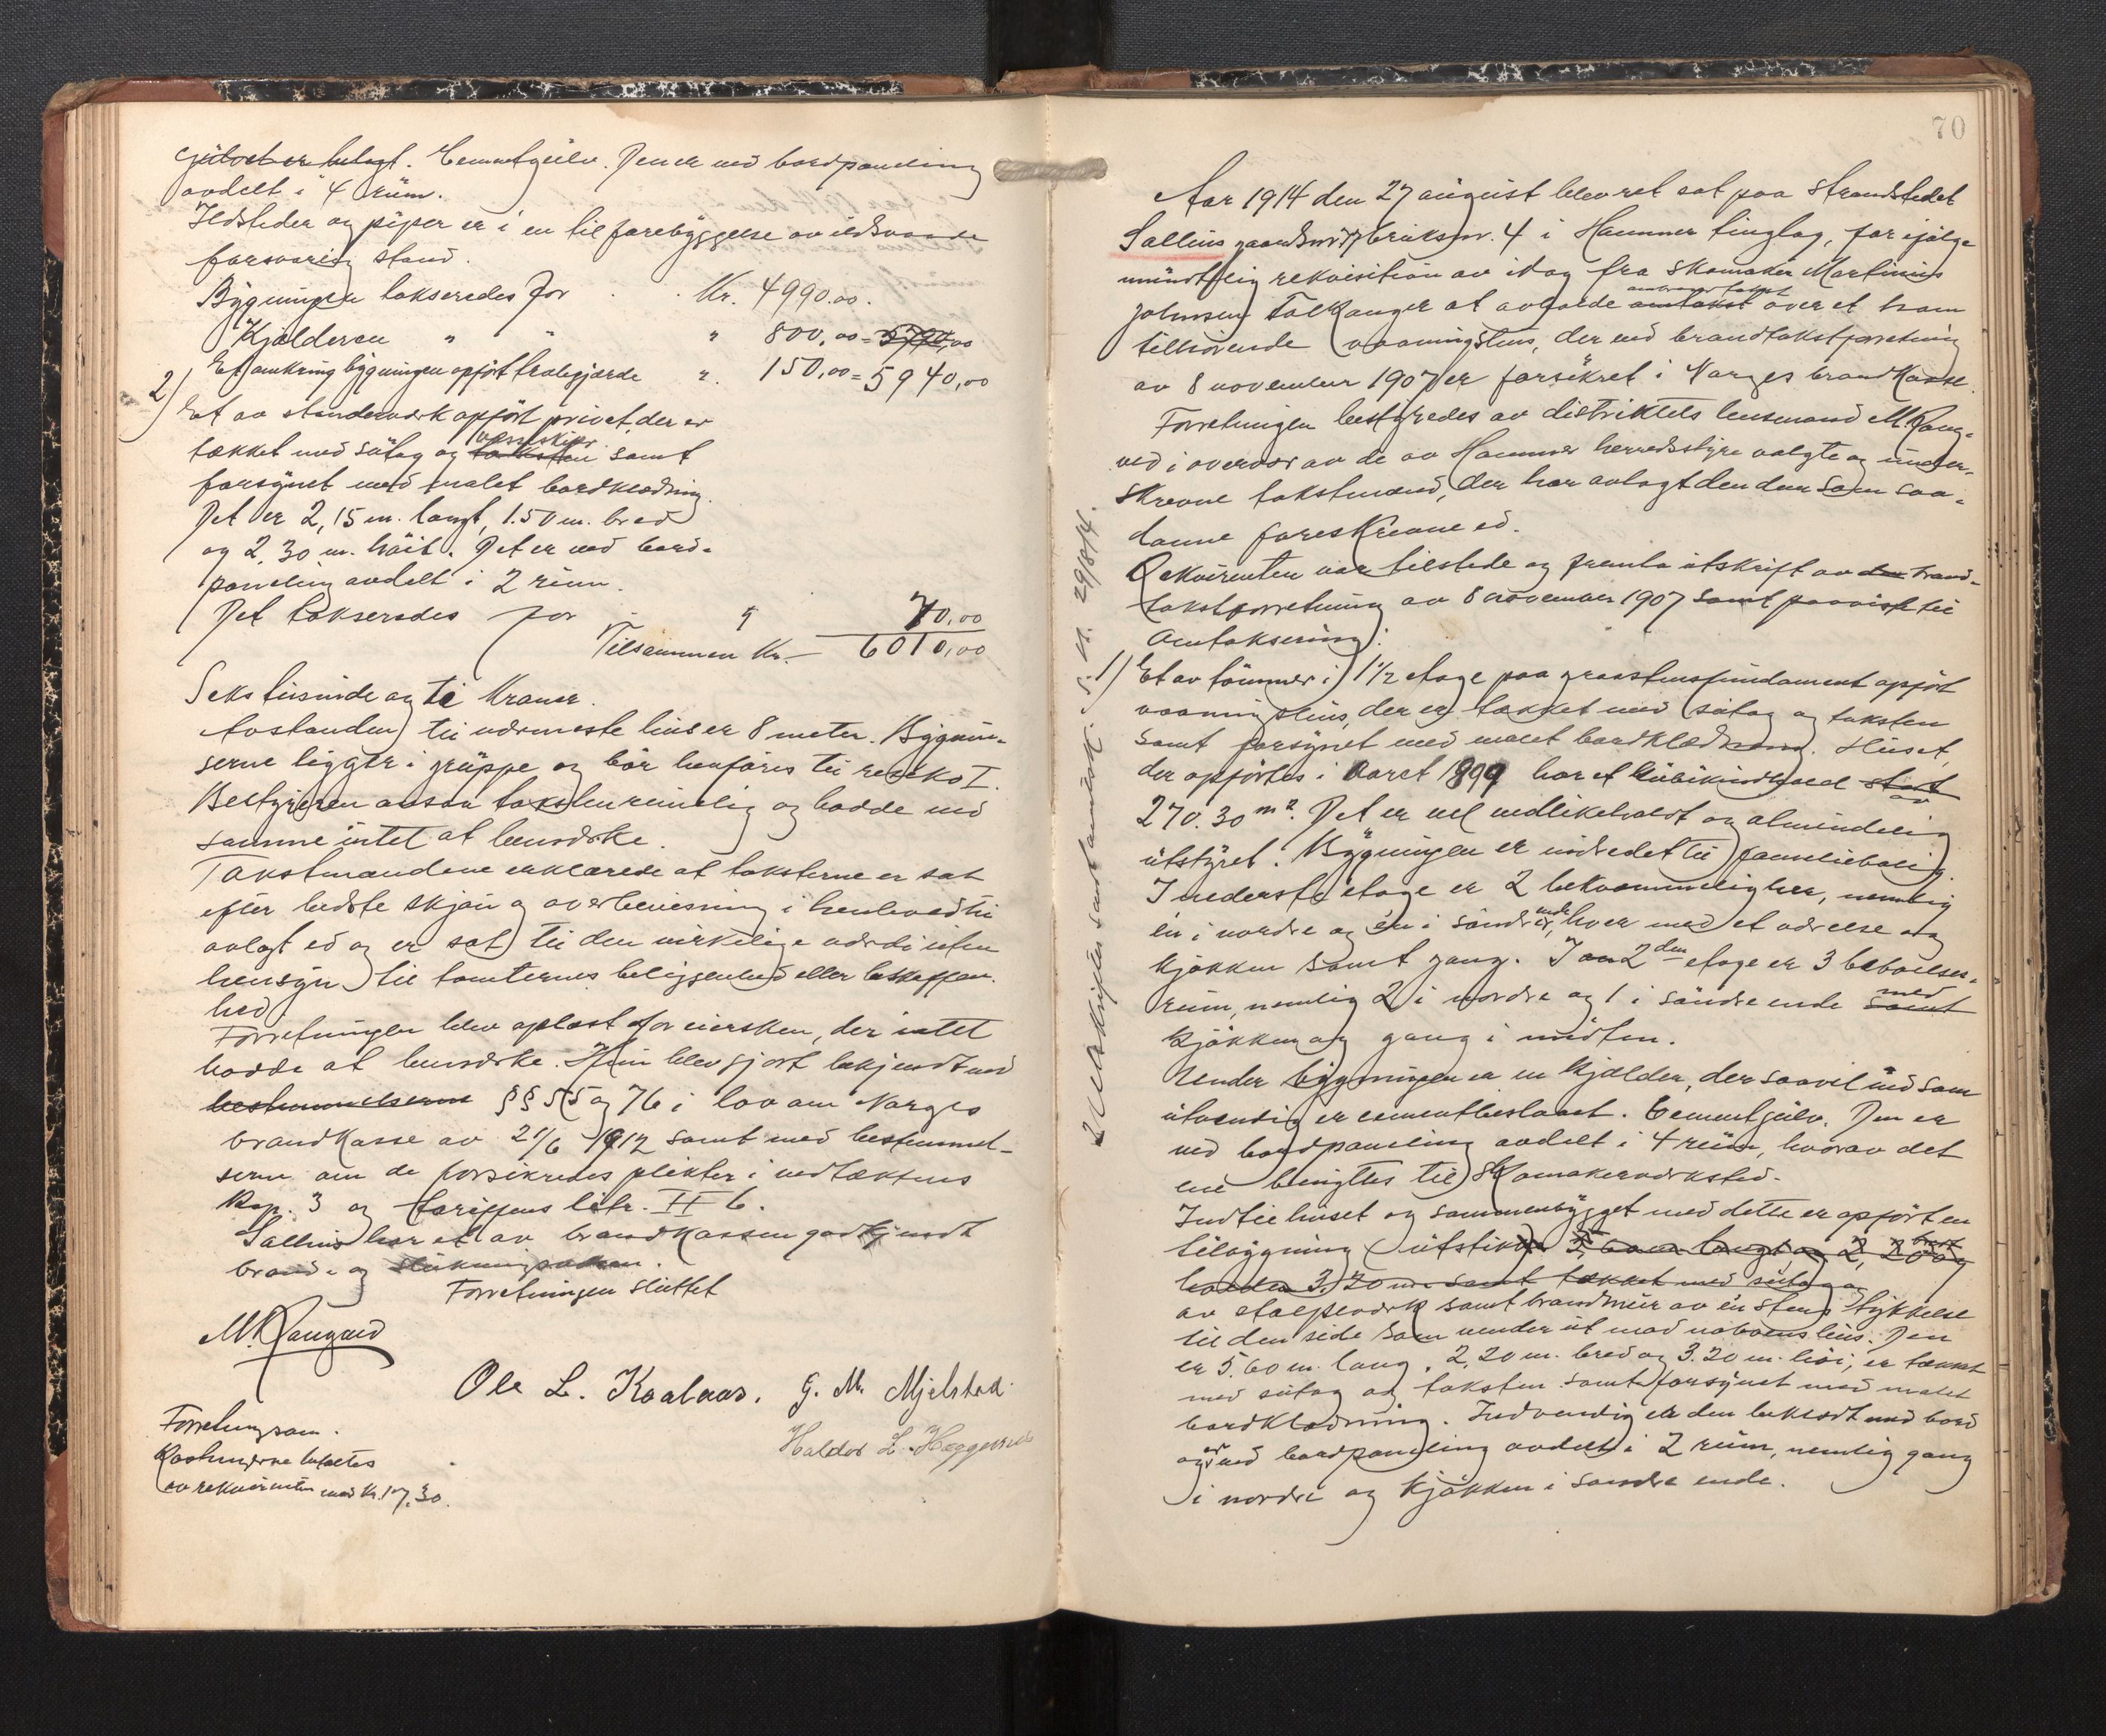 gulvet er belagt. Cementgulv. Den er med bordpaneling
avdelt i 4 rum.
Ildsteder og piper er i en til forebyggelse av ildsvaade
forsvarlig stand.
Bygningen takseredes for Kr. 4990.00.
Kjælderen " " " 800,00 = 5790,00
Et omkring bygningen opført stakgjærde " 150,00 = 5940,00
2) Et av stenderverk opført privet, der er
tækket med sutag og taksten væmskifer samt
forsynet med malet bordklædning.
Det er 2,15 m. langt, 1.50 m. bred
og 2,30 m. høit. Det er med bord-
paneling avdelt i 2 rum.
Det takseredes for " 70,00
Tilsammen Kr. 6010,00
Seks tusinde og ti Kroner.
Avstanden til nærmeste hus er 8 meter. Bygnin-
gerne ligger i gruppe og bør henføres til resiko I.
Bestyreren ansaa taksten rimelig og hadde ved
samme intet at bemerke.
Takstmændene erklærede at taksterne er sat
efter bedste skjøn og overbevisning i henhold til
avlagt ed og er sat til den virkelige værdi uten
hensyn til tomternes beliggenhed eller beskaffen-
hed.
Forretningen blev oplæst for eiersken, der intet
hadde at bemerke. Hun blev gjort bekjendt med
bestemmelserne §§ 55 og 76 i lov om Norges
brandkasse av 21/6 1912 samt med bestemmel-
serne om de forsikredes plikter i vedtækternes
Kap. 3 og tariffens litr. II 6.
Salhus har et av brandkassen godkjendt
brand- og slukningsvæsen.
Forretningen sluttet
M. Raugard
Ole L. Kaalaas. G. M. Mjelstad
Haldor L. Haggernes
Forretningsom-
kostningerne betaltes
av rekvirenten med Kr. 17,30.
70
Aar 1914 den 27 august blev ret sat paa strandstedet
Salhus gaardsnr. 17 bruksnr. 4 i Hammer tinglag, for ifølge
mundtlig rekvisition av idag fra skomaker Martinus
Johnsen Talkanger at avholde omtakst over et ham
tilhørende vaaningshus, der ved brandtakstforretning
av 8 november 1907 er forsikret i Norges brandkasse.
Forretningen bestyredes av distriktets lensmand M. Raug-
ved i overvær av de av Hammer herredsstyre valgte og under-
skrevne takstmænd, der har avlagt den dem som saa-
danne foreskrevne ed.
Rekvirenten var tilstede og fremla utskrift av den brand-
takstforretning av 8 november 1907 samt paaviste til
omtaksering:
1) Et av tømmer i 1 1/2 etage paa graastensfundament opført
vaaningshus, der er tækket med sutag og taksten
samt forsynet med malet bordklædning. Huset,
der opførtes i aaret 1899 har et kubikindhold stort av
270.30 m². Det er vel vedlikeholdt og almindelig
utstyret. Bygningen er indredet til familiebolig.
I nederste etage er 2 bekvæmmeligheder, nemlig
én i nordre og én i søndre ende, hver med et værelse og
kjøkken samt gang. I 2den etage er 3 beboelses-
rum, nemlig 2 i nordre og 1 i søndre ende samt med
kjøkken og gang i midten.
Under bygningen er en kjælder, der saavel ind som
utvendig er cementbeslaaet. Cementgulv. Den er
ved bordpaneling avdelt i 4 rum, hvorav det
ene benyttes til skomakerverksted.
Ind til huset og sammenbygget med dette er opført en
tilbygning (utstikk) 5,60 m. langt og 2,20 bredt og
høiden 3.20 m. samt tækket med sutag og
av stolpeverk samt brandmur av én stens tykkelse
til den side som vender ut mod naboens hus. Den
er 5.60 m. lang, 2,20 m. bred og 3.20 m. høi, er tækket
med sutag og taksten samt forsynet med malet
bordklædning. Indvendig er den beklædt med bord
og er ved bordpaneling avdelt i 2 rum, nemlig gang
i nordre og kjøkken i søndre ende.
29/8/14.